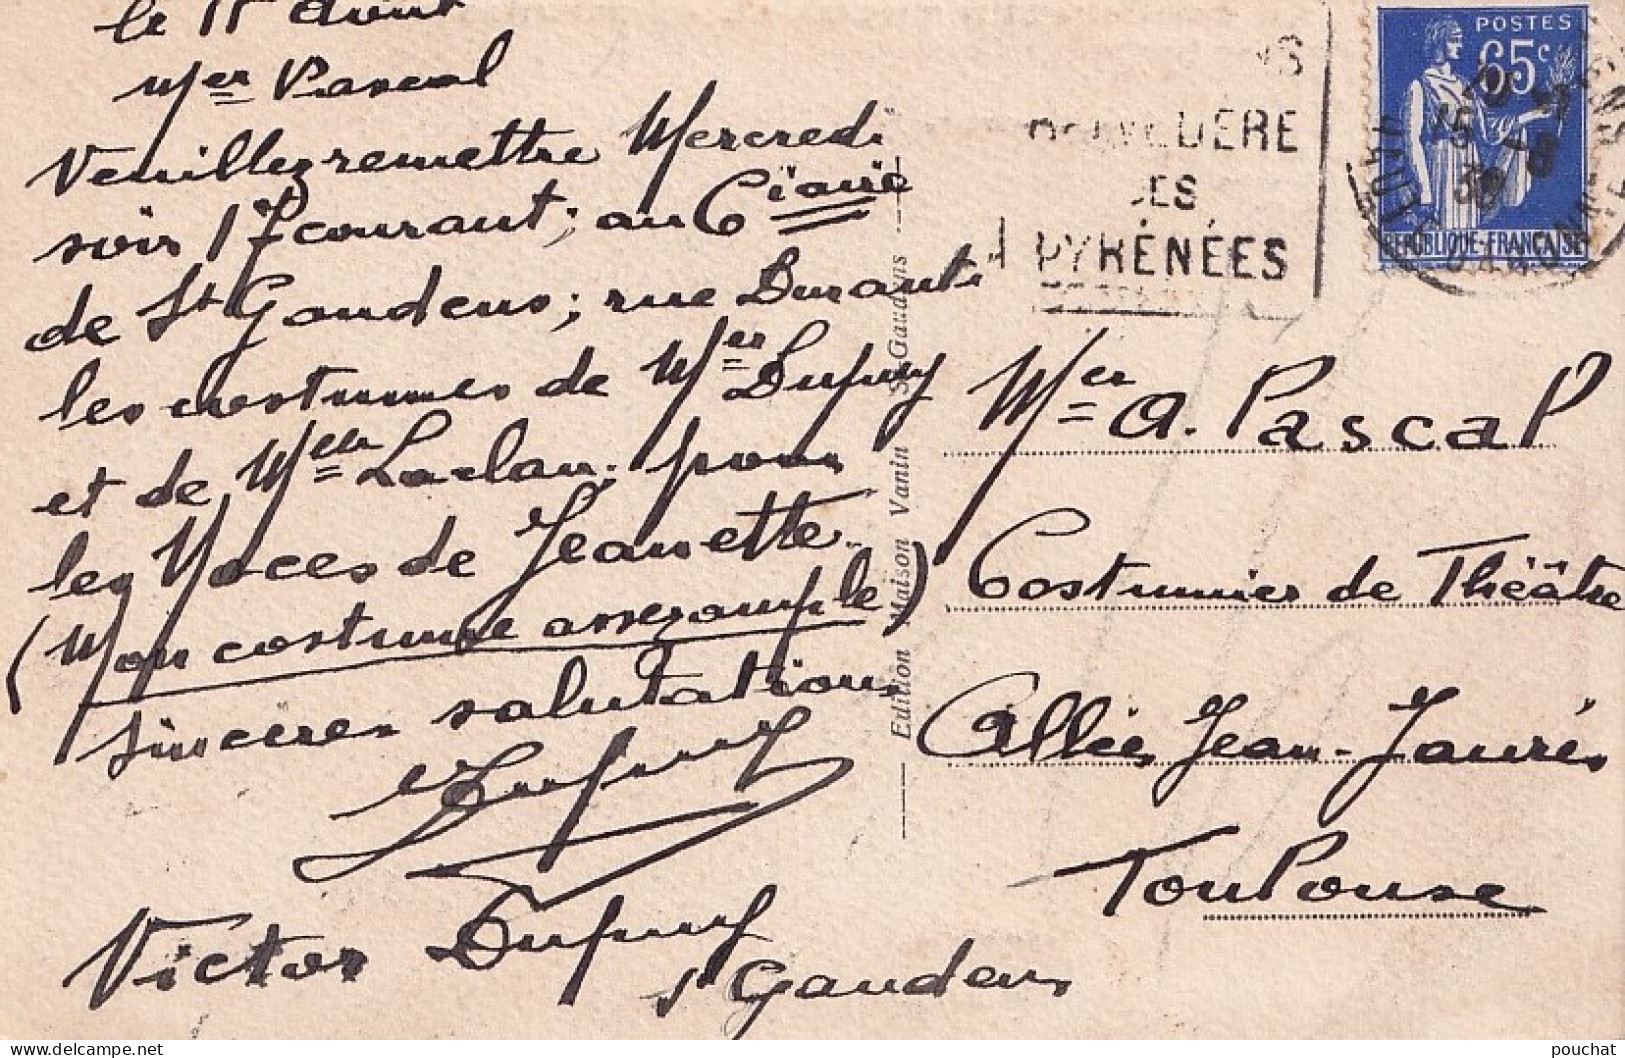 le 15 Aout
Mer Pascal
Veuillez remettre Mercredi
soir 17 courant; au Ciaire
de St Gaudens; rue Durant
les costumes de Mer Dupuy
et de Melle Laclau. pour
les Noces de Jeanette
(Mon costume assez ample)
sinceres salutations
Dupuy
Victor Dupuy
St Gaudens
Edition Maison Vanin St-Gaudens
BELVEDERE
DES
PYRÉNÉES
POSTES
65c
REPUBLIQUE-FRANCAISE
15
38
GARONNE
Mer A. Pascal
Costumier de Théâtre
Allées Jean-Jaurès
Toulouse
pouchat